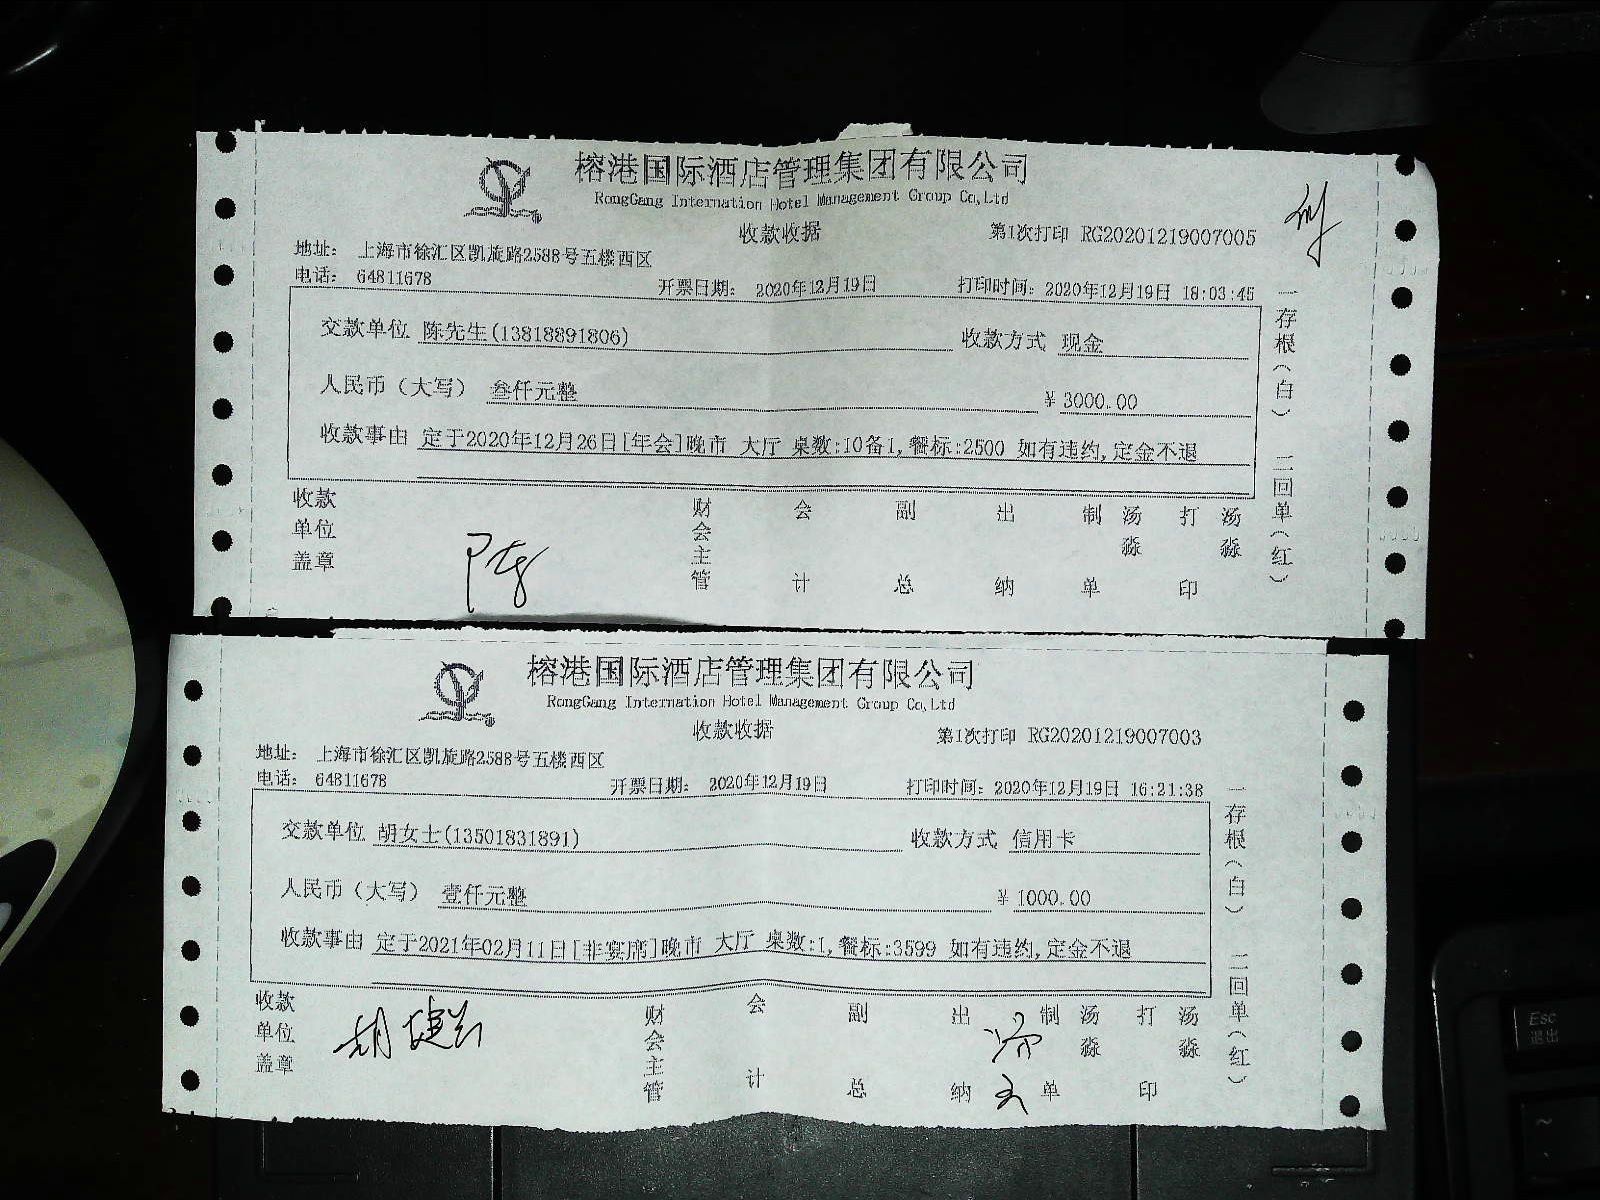 榕港国际酒店管理集团有限公司
RongGang Internation Hotel Management Group Co,Ltd
收款收据 第1次打印 RG20201219007005
地址： 上海市徐汇区凯旋路2588号五楼西区
电话： 64811678 开票日期： 2020年12月19日 打印时间：2020年12月19日 18:03:45
交款单位 陈先生(13818891806) 收款方式 现金
人民币（大写） 叁仟元整 ￥3000.00
收款事由 定于2020年12月26日[年会]晚市 大厅 桌数:10备1,餐标:2500 如有违约,定金不退
收款单位盖章 财会主管 会计 副总 出纳 制单 汤淼 打印 汤淼
一存根（白） 二回单（红）
榕港国际酒店管理集团有限公司
RongGang Internation Hotel Management Group Co,Ltd
收款收据 第1次打印 RG20201219007003
地址： 上海市徐汇区凯旋路2588号五楼西区
电话： 64811678 开票日期： 2020年12月19日 打印时间：2020年12月19日 16:21:38
交款单位 胡女士(13501831891) 收款方式 信用卡
人民币（大写） 壹仟元整 ￥1000.00
收款事由 定于2021年02月11日[非宴席]晚市 大厅 桌数:1,餐标:3599 如有违约,定金不退
收款单位盖章 财会主管 会计 副总 出纳 制单 汤淼 打印 汤淼
一存根（白） 二回单（红）
Esc
退出